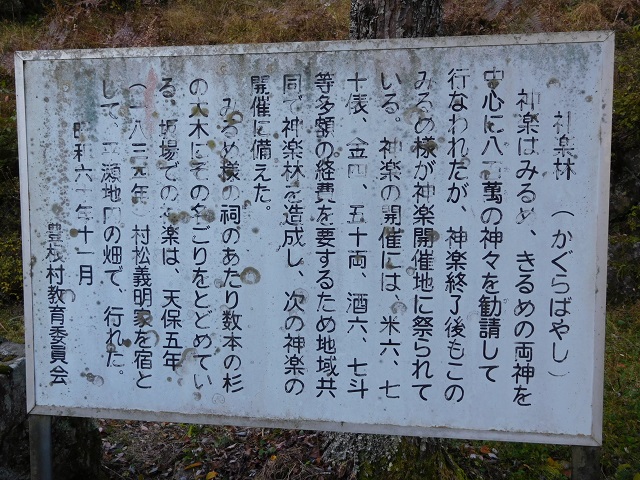 神楽林 (かぐらばやし)
神楽はみるめ、きるめの両神を
中心に八百萬の神々を勧請して
行なわれたが、神楽終了後もこの
みるめ様が神楽開催地に祭られて
いる。神楽の開催には、米六、七
十俵、金四、五十両、酒六、七斗
等多額の経費を要するため地域共
同で神楽林を造成し、次の神楽の
開催に備えた。
みるめ様の祠のあたり数本の杉
の大木にその名ごりをとどめてい
る。坂場での神楽は、天保五年
(一八三四年)村松義明家を宿と
して、瀬地内の畑で、行れた。
昭和六年十一月
豊根村教育委員会